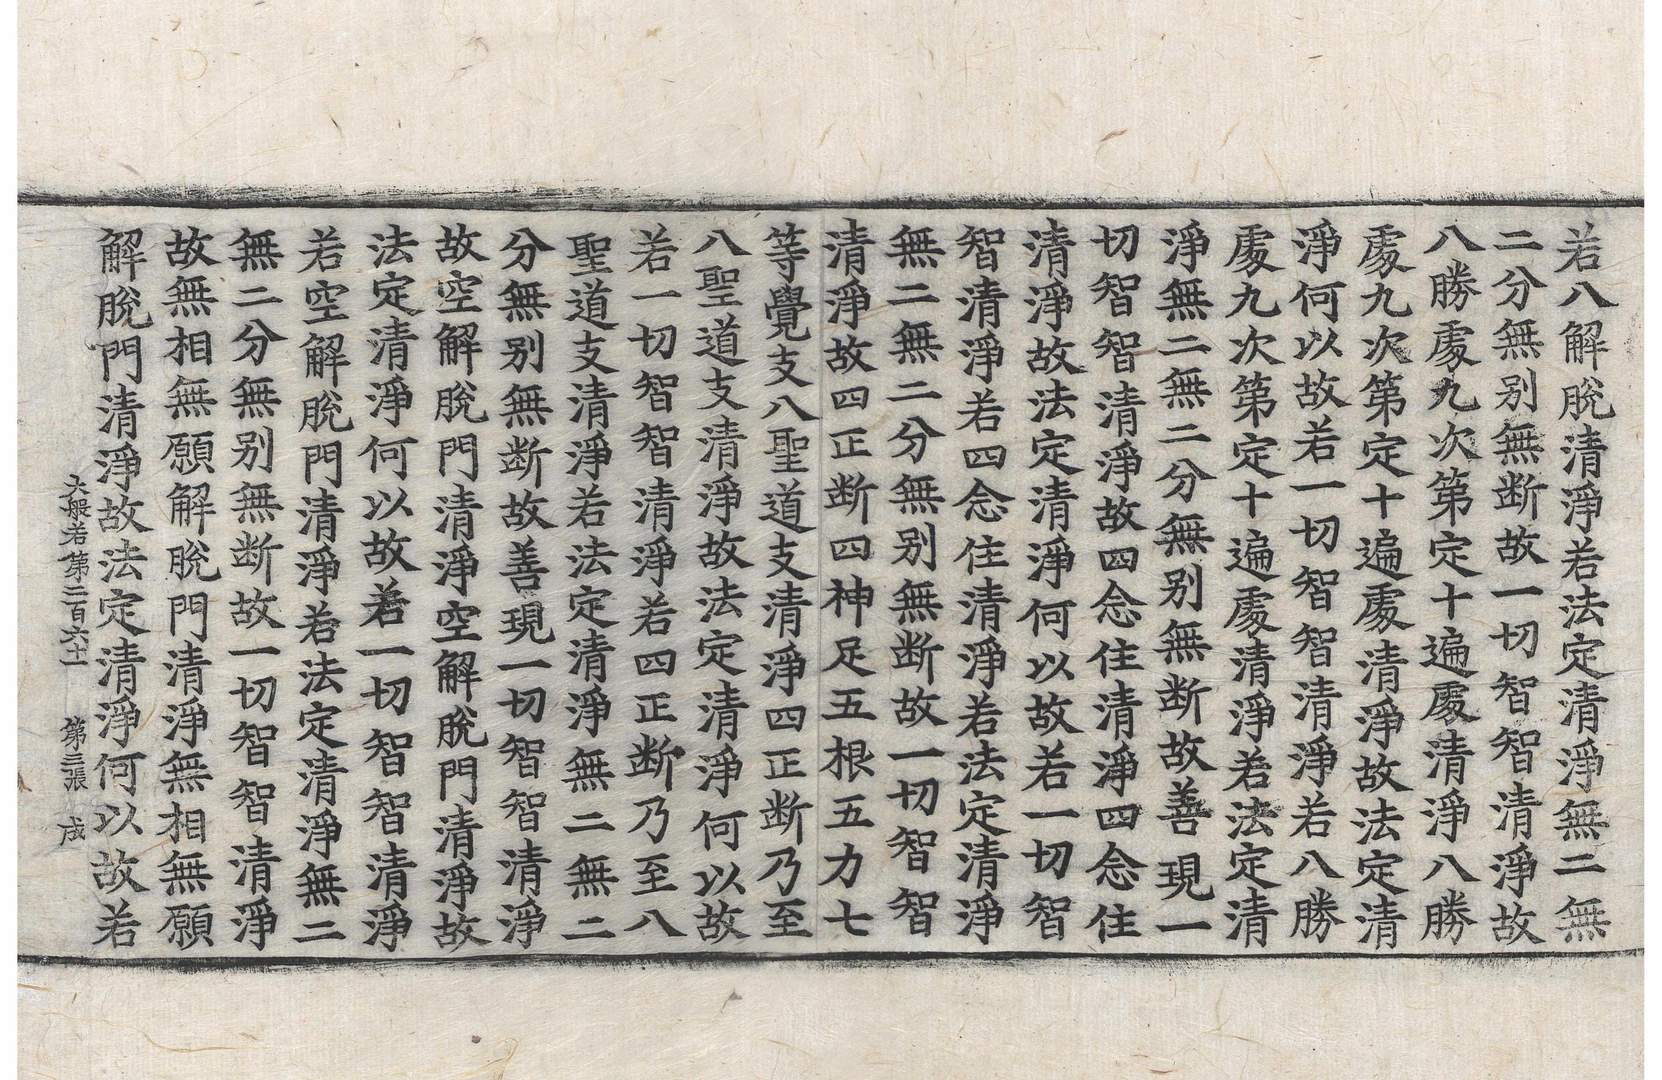 若八解脫清淨若法定清淨無二無
二分無别無断故一切智智清淨故
八勝處九次第定十遍處清淨八勝
處九次第定十遍處清淨故法定清
淨何以故若一切智智清淨若八勝
處九次第定十遍處清淨若法定清
淨無二無二分無别無断故善現一
切智智清淨故四念住清淨四念住
清淨故法定清淨何以故若一切智
智清淨若四念住清淨若法定清淨
無二無二分無别無断故一切智智
清淨故四正断四神足五根五力七
等覺支八聖道支清淨四正断乃至
八聖道支清淨故法定清淨何以故
若一切智智清淨若四正断乃至八
聖道支清淨若法定清淨無二無二
分無别無断故善現一切智智清淨
故空解脫門清淨空解脫門清淨故
法定清淨何以故若一切智智清淨
若空解脫門清淨若法定清淨無二
無二分無别無断故一切智智清淨
故無相無願解脫門清淨無相無願
解脫門清淨故法定清淨何以故若
大般若第二百六十一 第三張 成